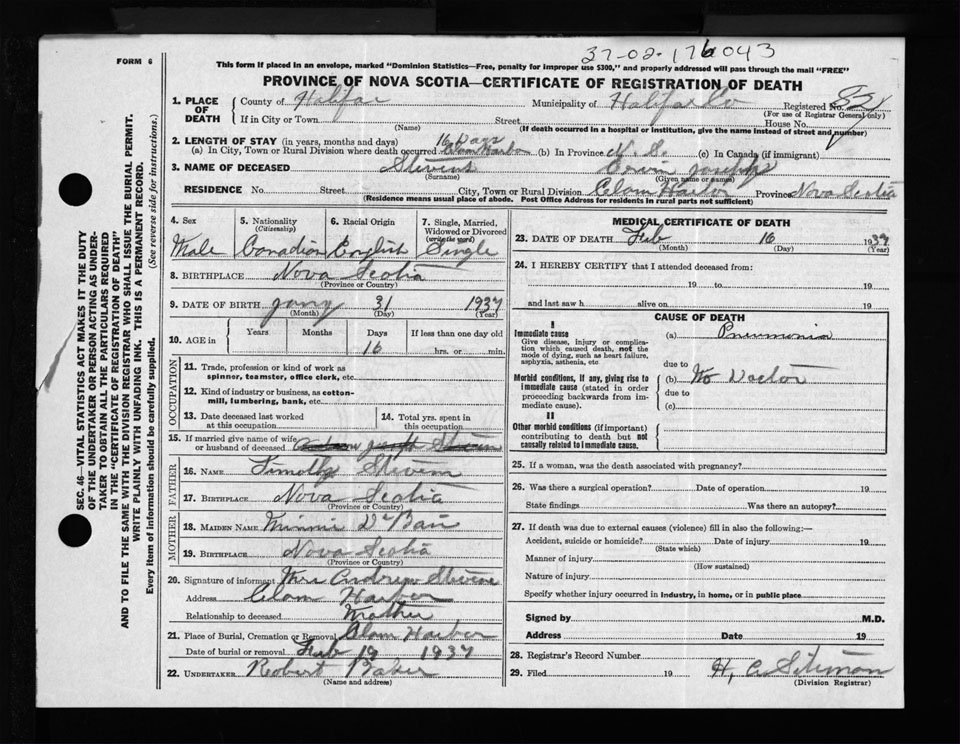 37-02-176043
FORM 6
This form if placed in an envelope, marked "Dominion Statistics—Free, penalty for improper use $300," and properly addressed will pass through the mail "FREE"
PROVINCE OF NOVA SCOTIA—CERTIFICATE OF REGISTRATION OF DEATH
SEC. 46—VITAL STATISTICS ACT MAKES IT THE DUTY
OF THE UNDERTAKER OR PERSON ACTING AS UNDER-
TAKER TO OBTAIN ALL THE PARTICULARS REQUIRED
IN THE "CERTIFICATE OF REGISTRATION OF DEATH"
AND TO FILE THE SAME WITH THE DIVISION REGISTRAR WHO SHALL ISSUE THE BURIAL PERMIT.
WRITE PLAINLY WITH UNFADING INK. THIS IS A PERMANENT RECORD.
Every item of information should be carefully supplied. (See reverse side for instructions.)
1. PLACE OF DEATH County of Halifax Municipality of Halifax Co Registered No. 82
(For use of Registrar General only)
If in City or Town Street House No.
(Name) (If death occurred in a hospital or institution, give the name instead of street and number)
2. LENGTH OF STAY (in years, months and days) 16 Days
(a) In City, Town or Rural Division where death occurred Clam Harbor (b) In Province N. S. (c) In Canada (if immigrant)
3. NAME OF DECEASED Stevens Joseph
(Surname) (Given name or names)
RESIDENCE No. Street City, Town or Rural Division Clam Harbor Province Nova Scotia
(Residence means usual place of abode. Post Office Address for residents in rural parts not sufficient)
4. Sex
Male
5. Nationality
(Citizenship)
Canadian
6. Racial Origin
English
7. Single, Married,
Widowed or Divorced
(write the word)
Single
8. BIRTHPLACE Nova Scotia
(Province or Country)
9. DATE OF BIRTH Jany 31 1937
(Month) (Day) (Year)
10. AGE in Years Months Days If less than one day old
16 hrs. or min.
OCCUPATION
11. Trade, profession or kind of work as
spinner, teamster, office clerk, etc.
12. Kind of industry or business, as cotton-
mill, lumbering, bank, etc.
13. Date deceased last worked
at this occupation
14. Total yrs. spent in
this occupation
15. If married give name of wife
or husband of deceased
FATHER
16. NAME Timothy Stevens
17. BIRTHPLACE Nova Scotia
(Province or Country)
MOTHER
18. MAIDEN NAME Minnie
19. BIRTHPLACE Nova Scotia
(Province or Country)
20. Signature of informant Mrs Andrew Stevens
Address Clam Harbor
Relationship to deceased
21. Place of Burial, Cremation or Removal Clam Harbor
Date of burial or removal Feb 19 1937
22. UNDERTAKER Robert Baker
(Name and address)
MEDICAL CERTIFICATE OF DEATH
23. DATE OF DEATH Feb 16 1937
(Month) (Day) (Year)
24. I HEREBY CERTIFY that I attended deceased from:
19 to 19
and last saw h alive on 19
CAUSE OF DEATH
I
Immediate cause
Give disease, injury or complica-
tion which caused death, not the
mode of dying, such as heart failure,
asphyxia, asthenia, etc
(a) Pneumonia
due to
Morbid conditions, if any, giving rise to
immediate cause (stated in order
proceeding backwards from im-
mediate cause).
(b) No Doctor
due to
(c)
II
Other morbid conditions (if important)
contributing to death but not
causally related to immediate cause.
25. If a woman, was the death associated with pregnancy?
26. Was there a surgical operation? Date of operation 19
State findings Was there an autopsy?
27. If death was due to external causes (violence) fill in also the following:—
Accident, suicide or homicide? Date of injury 19
(State which)
Manner of injury
(How sustained)
Nature of injury
Specify whether injury occurred in industry, in home, or in public place
Signed by M.D.
Address Date 19
28. Registrar's Record Number
29. Filed 19
(Division Registrar)